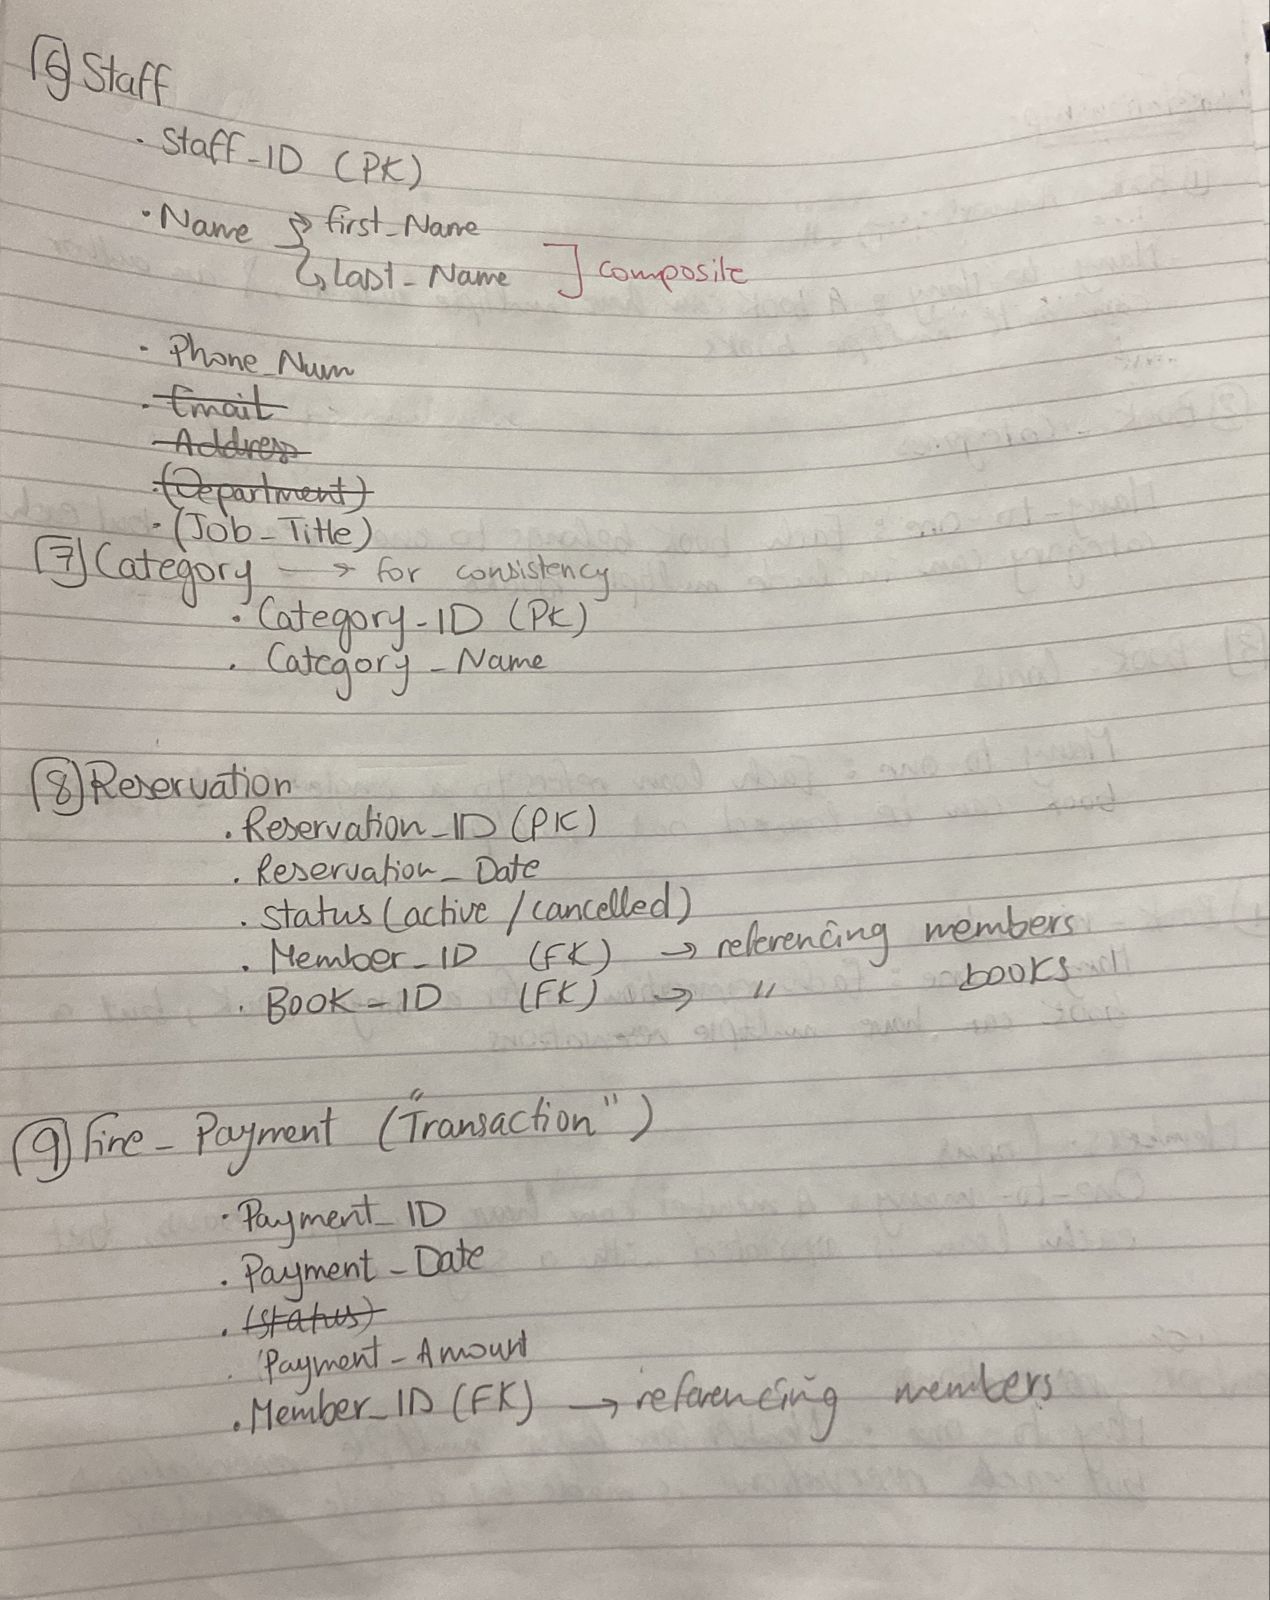 6 Staff
· Staff_ID (PK)
· Name → first_Name
↳ Last_Name ] composite
· Phone_Num
· Email
Address
· (Department)
· (Job_Title)
7 Category → for consistency
· Category_ID (PK)
· Category_Name
8 Reservation
· Reservation_ID (PK)
· Reservation_Date
· Status (active / cancelled)
· Member_ID (FK) → referencing members
· Book_ID (FK) → " books
9 Fine_Payment ("Transaction")
· Payment_ID
· Payment_Date
· (status)
· Payment_Amount
· Member_ID (FK) → referencing members